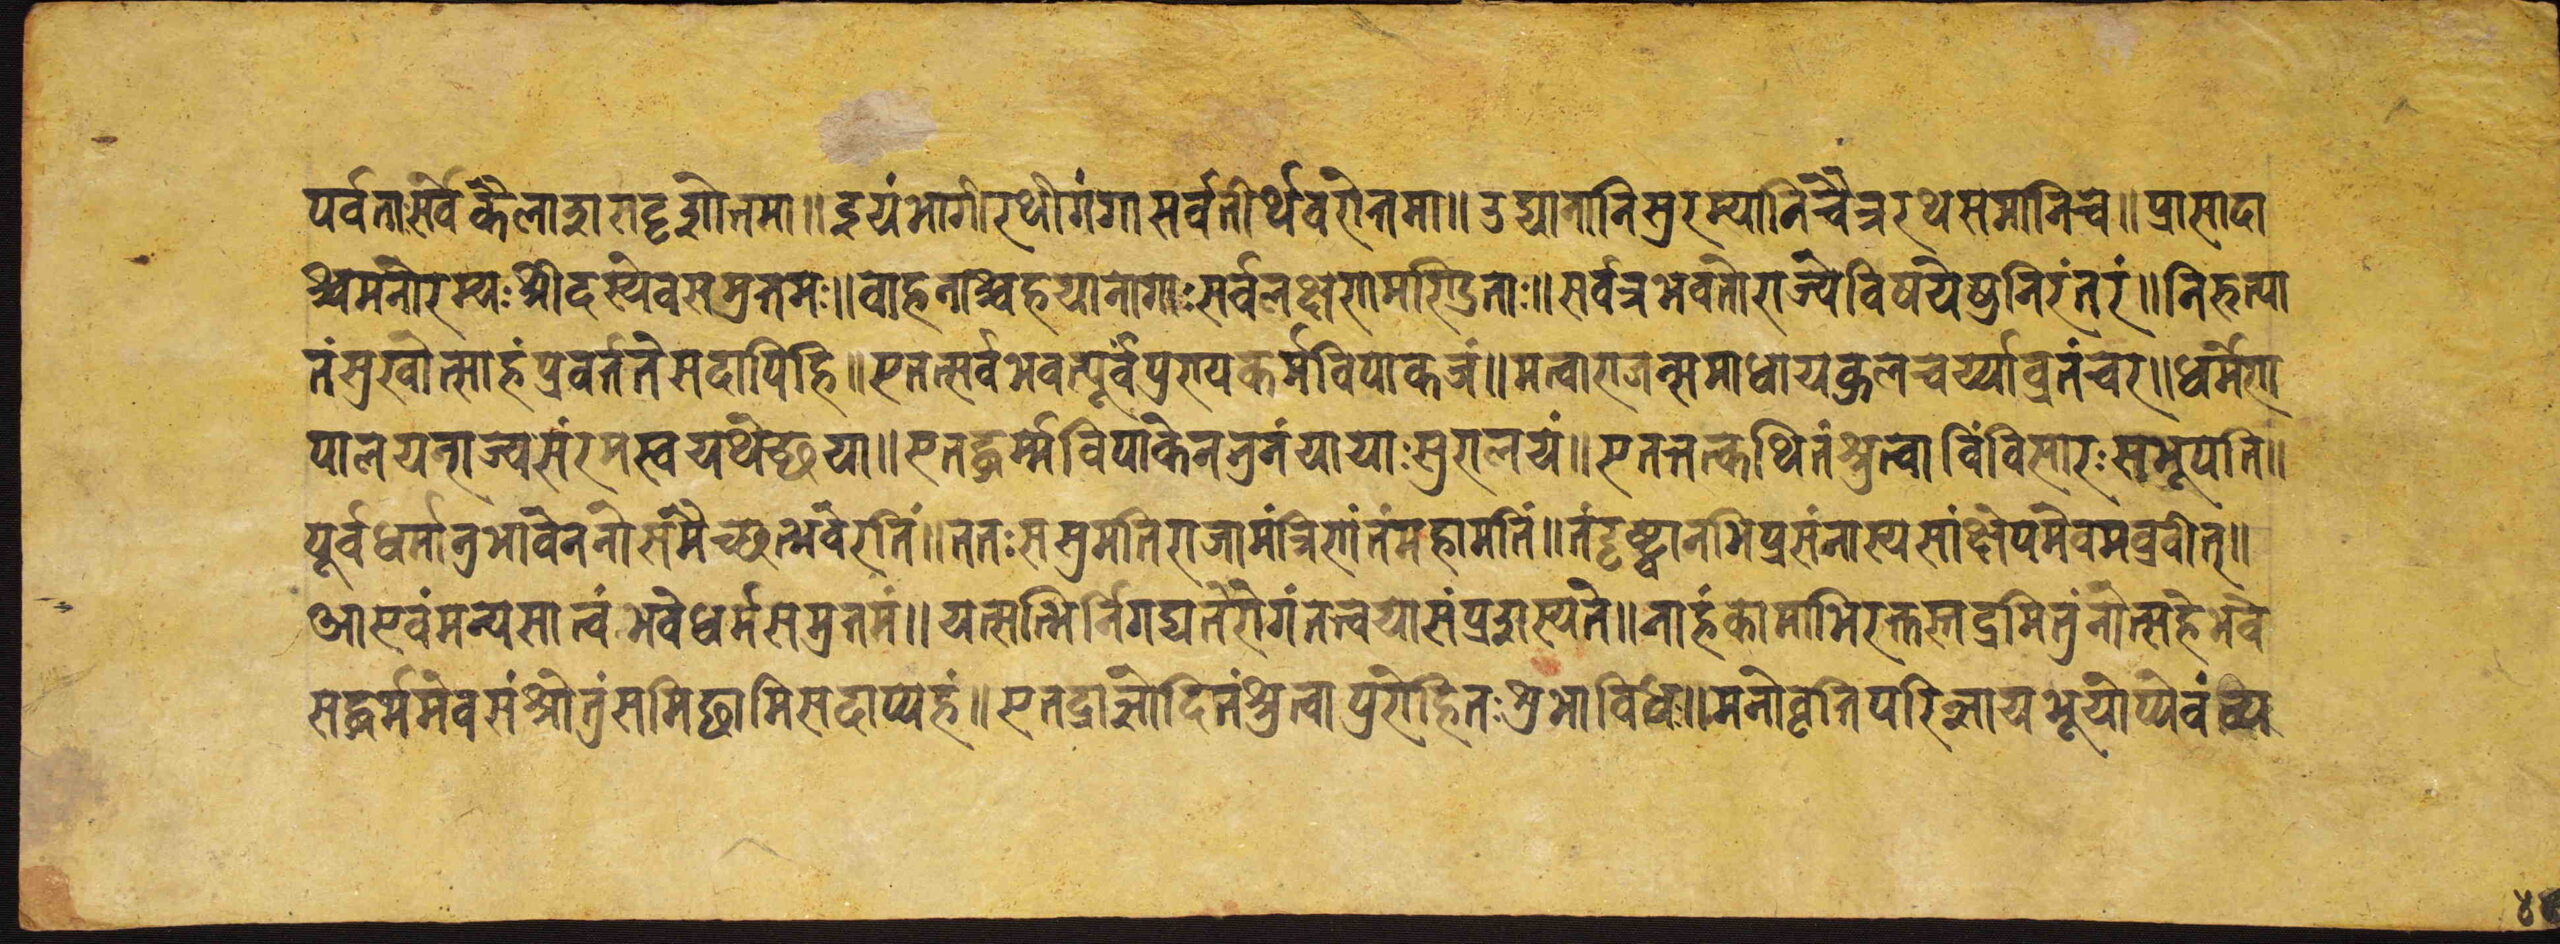 पर्वताःसर्वेकैलाशासदृशोत्तमा॥इयंभागीरथीगंगासर्वतीर्थवरोत्तमा॥उद्यानानिसुरम्यानिचैत्ररथसमानिच॥प्रासादा
श्चमनोरम्यःश्रीदस्येवसमुत्तमः॥वाहनाश्चहयानागाःसर्वलक्षणमण्डिताः॥सर्वत्रभवतोराज्येविषयेषुनिरंतरं॥निरुत्पा
तंसुखोत्साहंप्रवर्ततेसदापिहि॥एतत्सर्वभवत्पूर्वपुण्यकर्मविपाकजं॥मत्वाराजन्समाधायकुलचर्य्याव्रतंचर॥धर्मेण
पालयन्राज्यसंरमस्वयथेच्छया॥एतद्धर्म्मविपाकेननुनंयायाःसुरालयं॥एतत्तत्कथितंश्रुत्वाविंविसारःसभूपति॥
पूर्वधर्मानुभावेननोसमैच्छत्भवेरतिं॥ततःससुमतिराजामंत्रिणंतंमहामतिं॥तंदृष्ट्वानभिप्रसंनास्यसांक्षेपमेवमव्रवीत्॥
आएवंमन्यसात्वंभवेधर्मसमुत्तमं॥यत्सत्भिर्निगद्यते॥नाहंकामाभिरक्तस्तद्रमितुंनोत्सहेभवे
सद्धर्ममेवसंश्रोतुंसमिछामिसदाप्यहं॥एतद्राज्ञोदितंश्रुत्वापुरोहितःशुभाविधः॥मनोवृत्तिपरिज्ञायभूयोप्येवंव्य
४